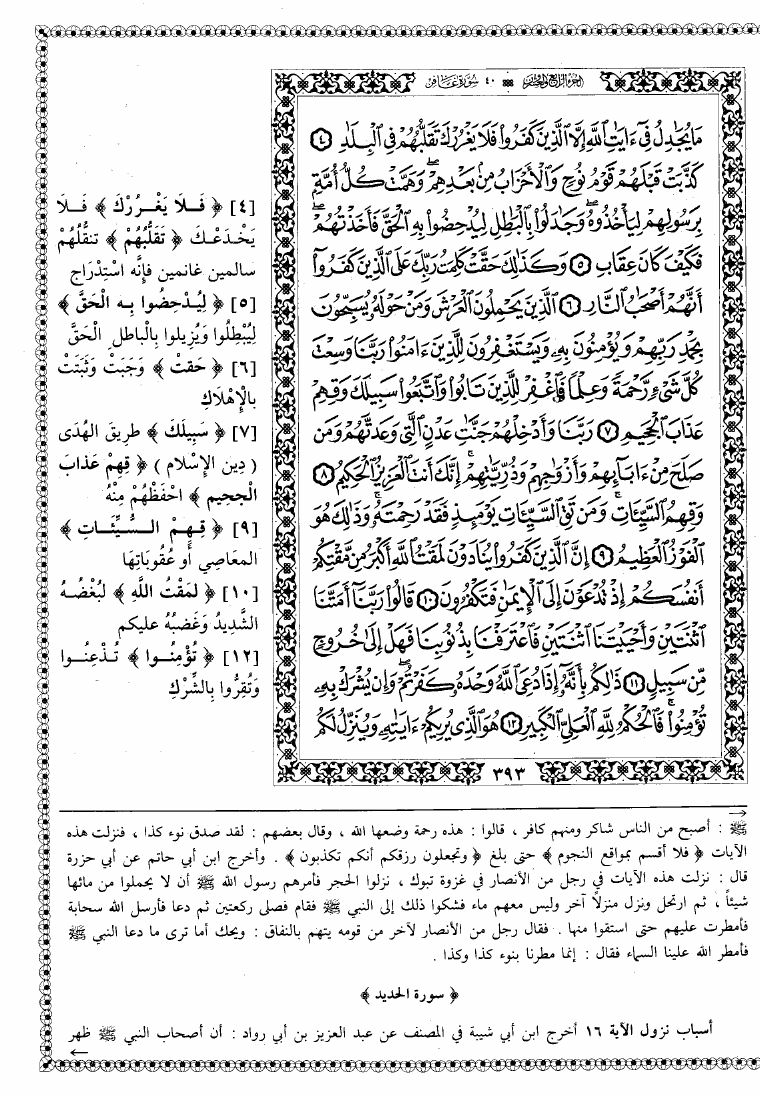 الجزء الرابع والعشرون ٤٠ سورة غافر
مَا يُجَٰدِلُ فِىٓ ءَايَٰتِ ٱللَّهِ إِلَّا ٱلَّذِينَ كَفَرُوا۟ فَلَا يَغْرُرْكَ تَقَلُّبُهُمْ فِى ٱلْبِلَٰدِ ٤
كَذَّبَتْ قَبْلَهُمْ قَوْمُ نُوحٍ وَٱلْأَحْزَابُ مِنۢ بَعْدِهِمْ ۖ وَهَمَّتْ كُلُّ أُمَّةٍۭ
بِرَسُولِهِمْ لِيَأْخُذُوهُ ۖ وَجَٰدَلُوا۟ بِٱلْبَٰطِلِ لِيُدْحِضُوا۟ بِهِ ٱلْحَقَّ فَأَخَذْتُهُمْ ۖ
فَكَيْفَ كَانَ عِقَابِ ٥ وَكَذَٰلِكَ حَقَّتْ كَلِمَتُ رَبِّكَ عَلَى ٱلَّذِينَ كَفَرُوٓا۟
أَنَّهُمْ أَصْحَٰبُ ٱلنَّارِ ٦ ٱلَّذِينَ يَحْمِلُونَ ٱلْعَرْشَ وَمَنْ حَوْلَهُۥ يُسَبِّحُونَ
بِحَمْدِ رَبِّهِمْ وَيُؤْمِنُونَ بِهِۦ وَيَسْتَغْفِرُونَ لِلَّذِينَ ءَامَنُوا۟ رَبَّنَا وَسِعْتَ
كُلَّ شَىْءٍ رَّحْمَةً وَعِلْمًا فَٱغْفِرْ لِلَّذِينَ تَابُوا۟ وَٱتَّبَعُوا۟ سَبِيلَكَ وَقِهِمْ
عَذَابَ ٱلْجَحِيمِ ٧ رَبَّنَا وَأَدْخِلْهُمْ جَنَّٰتِ عَدْنٍ ٱلَّتِى وَعَدتَّهُمْ وَمَن
صَلَحَ مِنْ ءَابَآئِهِمْ وَأَزْوَٰجِهِمْ وَذُرِّيَّٰتِهِمْ ۚ إِنَّكَ أَنتَ ٱلْعَزِيزُ ٱلْحَكِيمُ ٨
وَقِهِمُ ٱلسَّيِّـَٔاتِ ۚ وَمَن تَقِ ٱلسَّيِّـَٔاتِ يَوْمَئِذٍ فَقَدْ رَحِمْتَهُۥ ۚ وَذَٰلِكَ هُوَ
ٱلْفَوْزُ ٱلْعَظِيمُ ٩ إِنَّ ٱلَّذِينَ كَفَرُوا۟ يُنَادَوْنَ لَمَقْتُ ٱللَّهِ أَكْبَرُ مِن مَّقْتِكُمْ
أَنفُسَكُمْ إِذْ تُدْعَوْنَ إِلَى ٱلْإِيمَٰنِ فَتَكْفُرُونَ ١٠ قَالُوا۟ رَبَّنَآ أَمَتَّنَا
ٱثْنَتَيْنِ وَأَحْيَيْتَنَا ٱثْنَتَيْنِ فَٱعْتَرَفْنَا بِذُنُوبِنَا فَهَلْ إِلَىٰ خُرُوجٍ
مِّن سَبِيلٍ ١١ ذَٰلِكُم بِأَنَّهُۥٓ إِذَا دُعِىَ ٱللَّهُ وَحْدَهُۥ كَفَرْتُمْ ۖ وَإِن يُشْرَكْ بِهِۦ
تُؤْمِنُوا۟ ۚ فَٱلْحُكْمُ لِلَّهِ ٱلْعَلِىِّ ٱلْكَبِيرِ ١٢ هُوَ ٱلَّذِى يُرِيكُمْ ءَايَٰتِهِۦ وَيُنَزِّلُ لَكُم
٣٩٣
[٤] ﴿ فَـلَا يَغْـرُرْكَ ﴾ فَـلَا
يَخْدَعْـكَ ﴿ تَقَلُّبُهُمْ ﴾ تَنَقُّلُهُمْ
سالمين غانمين فإنَّه اسْتِدْرَاج
[٥] ﴿ لِيُـدْحِضُوا بِـه الحَقَّ ﴾
لِيُبْطِلُوا وَيُزِيلوا بِالْباطلِ الْحَقَّ
[٦] ﴿ حَقتْ ﴾ وَجَبَتْ وَثَبَتَتْ
بالْإِهْلَاكِ
[٧] ﴿ سَبِيلَكَ ﴾ طريقَ الهُدَى
( دِينَ الإِسْلَام ) ﴿ قِهِمْ عَذابَ
الْجحيم ﴾ احْفَظْهُمْ مِنْهُ
[٩] ﴿ قِـهِـمْ الـسُّيِّئَـاتِ ﴾
المعَاصِي أو عُقُوبَاتِهَا
[١٠] ﴿ لمَقْتُ اللَّهِ ﴾ لَبُغْضُـهُ
الشَّدِيدُ وَغَضبُهُ عليكم
[١٢] ﴿ تُؤْمِنُـوا ﴾ تُـذْعِنُـوا
وَتُقِرُّوا بِالشِّرْكِ
ﷺ : أصبح من الناس شاكر ومنهم كافر ، قالوا : هذه رحمة وضعها الله ، وقال بعضهم : لقد صدق نوء كذا ، فنزلت هذه
الآيات ﴿ فلا أقسم بمواقع النجوم ﴾ حتى بلغ ﴿ وتجعلون رزقكم أنكم تكذبون ﴾ . وأخرج ابن أبي حاتم عن أبي حزرة
قال : نزلت هذه الآيات في رجل من الأنصار في غزوة تبوك ، نزلوا الحجر فأمرهم رسول الله ﷺ أن لا يحملوا من مائها
شيئاً ، ثم ارتحل ونزل منزلاً آخر وليس معهم ماء فشكوا ذلك إلى النبي ﷺ فقام فصلى ركعتين ثم دعا فأرسل الله سحابة
فأمطرت عليهم حتى استقوا منها . فقال رجل من الأنصار لآخر من قومه يتهم بالنفاق : ويحك أما ترى ما دعا النبي ﷺ
فأمطر الله علينا السماء فقال : إنما مطرنا بنوء كذا وكذا .
﴿ سورة الحديد ﴾
أسباب نزول الآية ١٦ أخرج ابن أبي شيبة في المصنف عن عبد العزيز بن أبي رواد : أن أصحاب النبي ﷺ ظهر